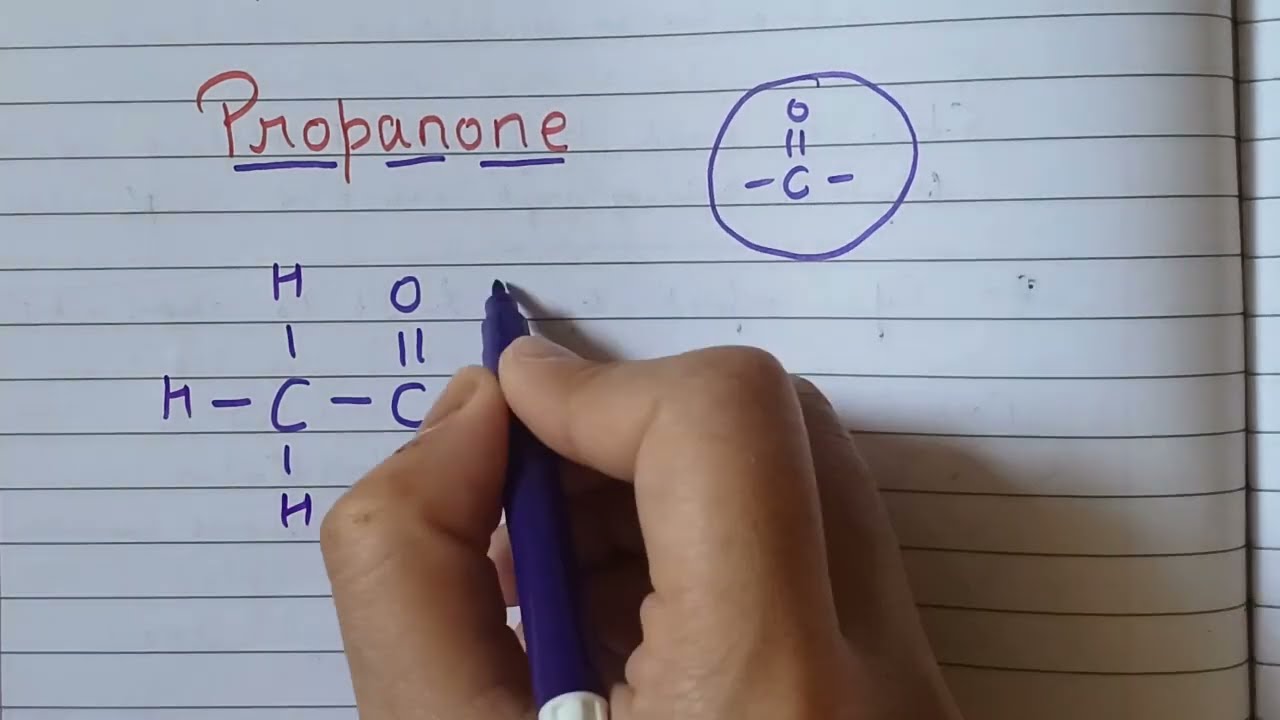 Propanone
O
||
- C -
H O
| ||
H - C - C
|
H